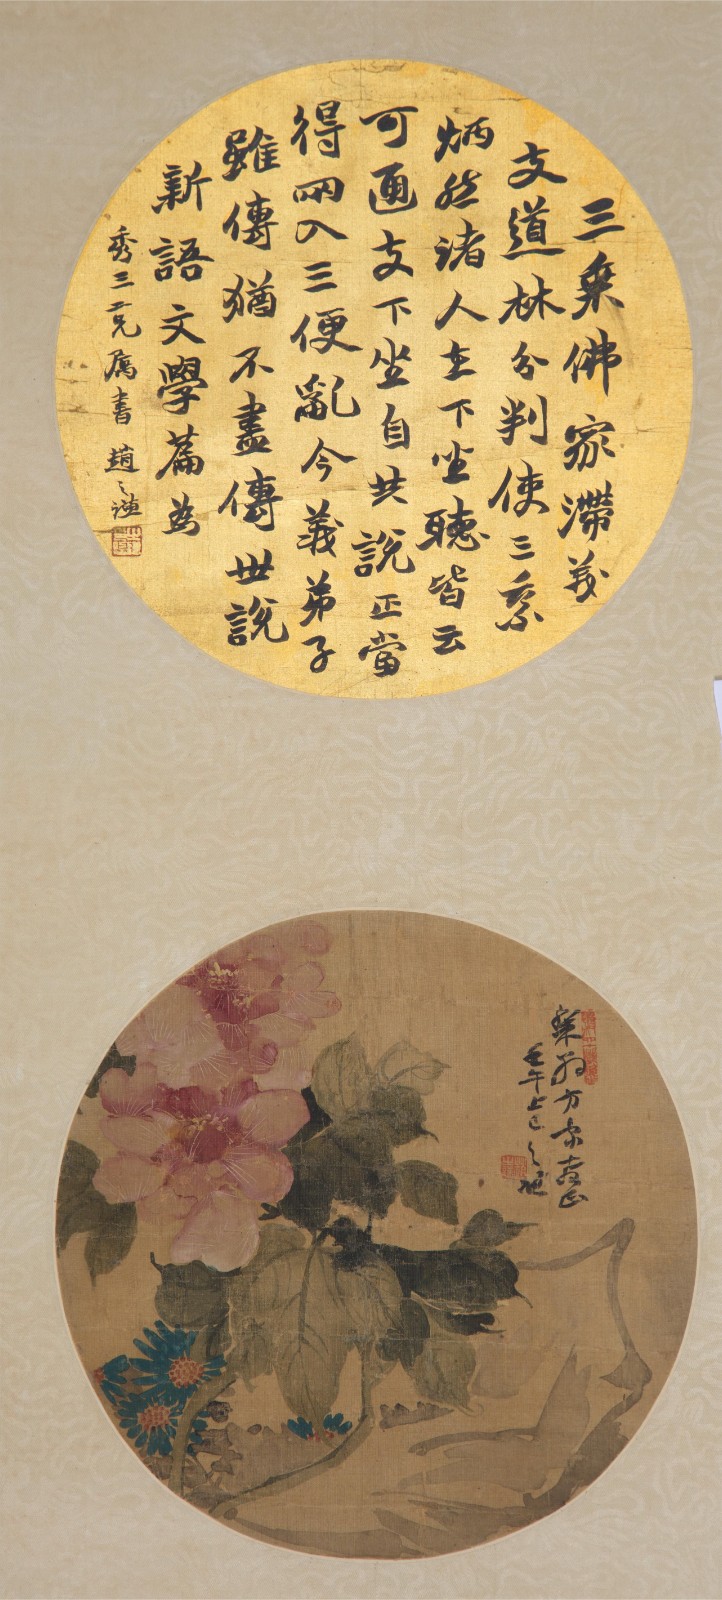 三乘佛家滯義
支道林分判使三乘
炳然諸人在下坐聽皆云
可通支下坐自共說正當
得兩入三便亂今義弟子
雖傳猶不盡傳世說
新語文學篇為
秀三二兄屬書 趙之謙
方家教正
壬午上巳之謙